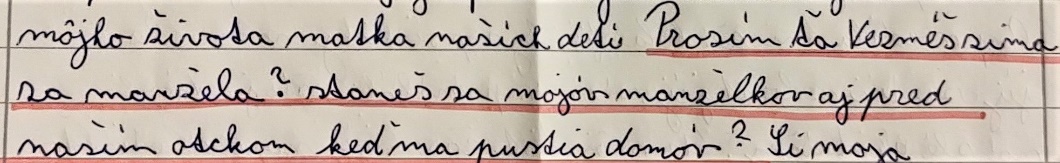 môjho života matka našich detí Prosím ťa Vezměš si ma
za manžela? staneš sa mojóv manželkov aj pred
našim otckom keď ma pustia domóv? Si moja